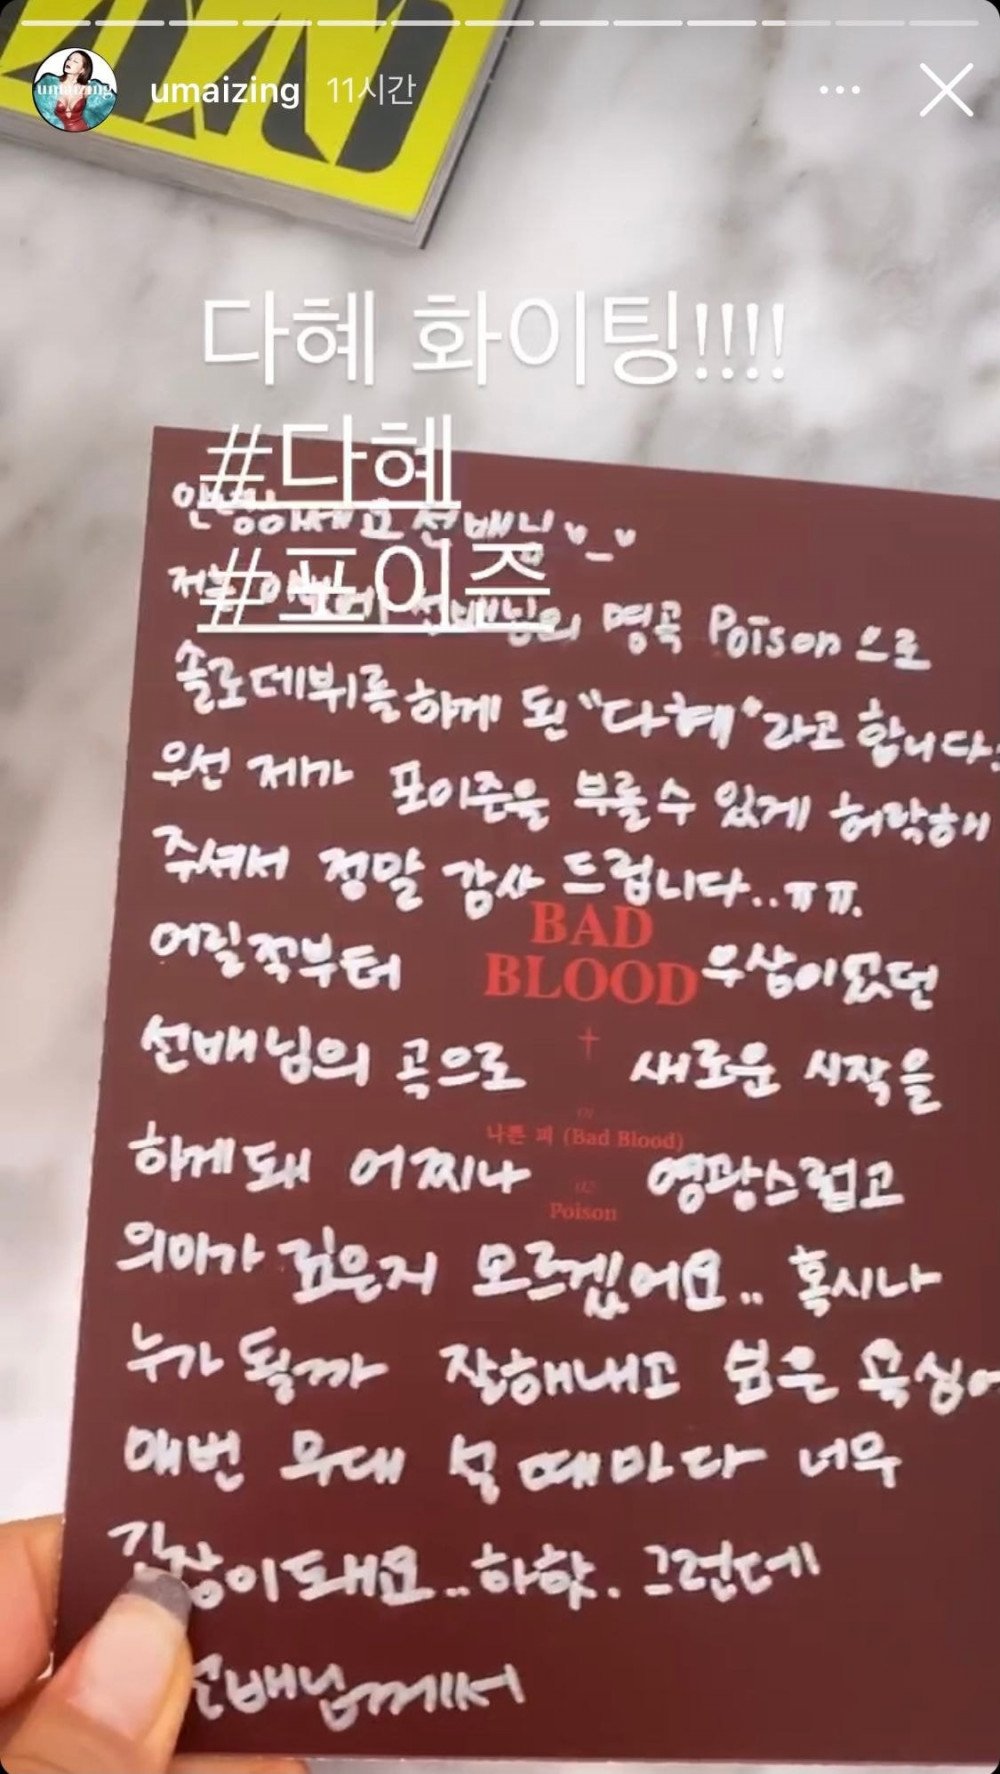 umaizing 11시간
다혜 화이팅!!!!
#다혜
#포이즌
안녕하세요 선배님
저는 이번에 선배님의 명곡 Poison으로
솔로데뷔를 하게 된 "다혜"라고 합니다
우선 제가 포이즌을 부를수 있게 허락해
주셔서 정말 감사 드립니다..ㅠㅠ.
어릴적부터 우상이였던
선배님의 곡으로 새로운 시작을
하게돼 어찌나 영광스럽고
의미가 깊은지 모르겠어요.. 혹시나
누가 될까 잘해내고 싶은 욕심에
매번 무대 설 때마다 너무
긴장이돼요..하핫. 그런데
선배님께서
BAD
BLOOD
01
나쁜 피 (Bad Blood)
02
Poison